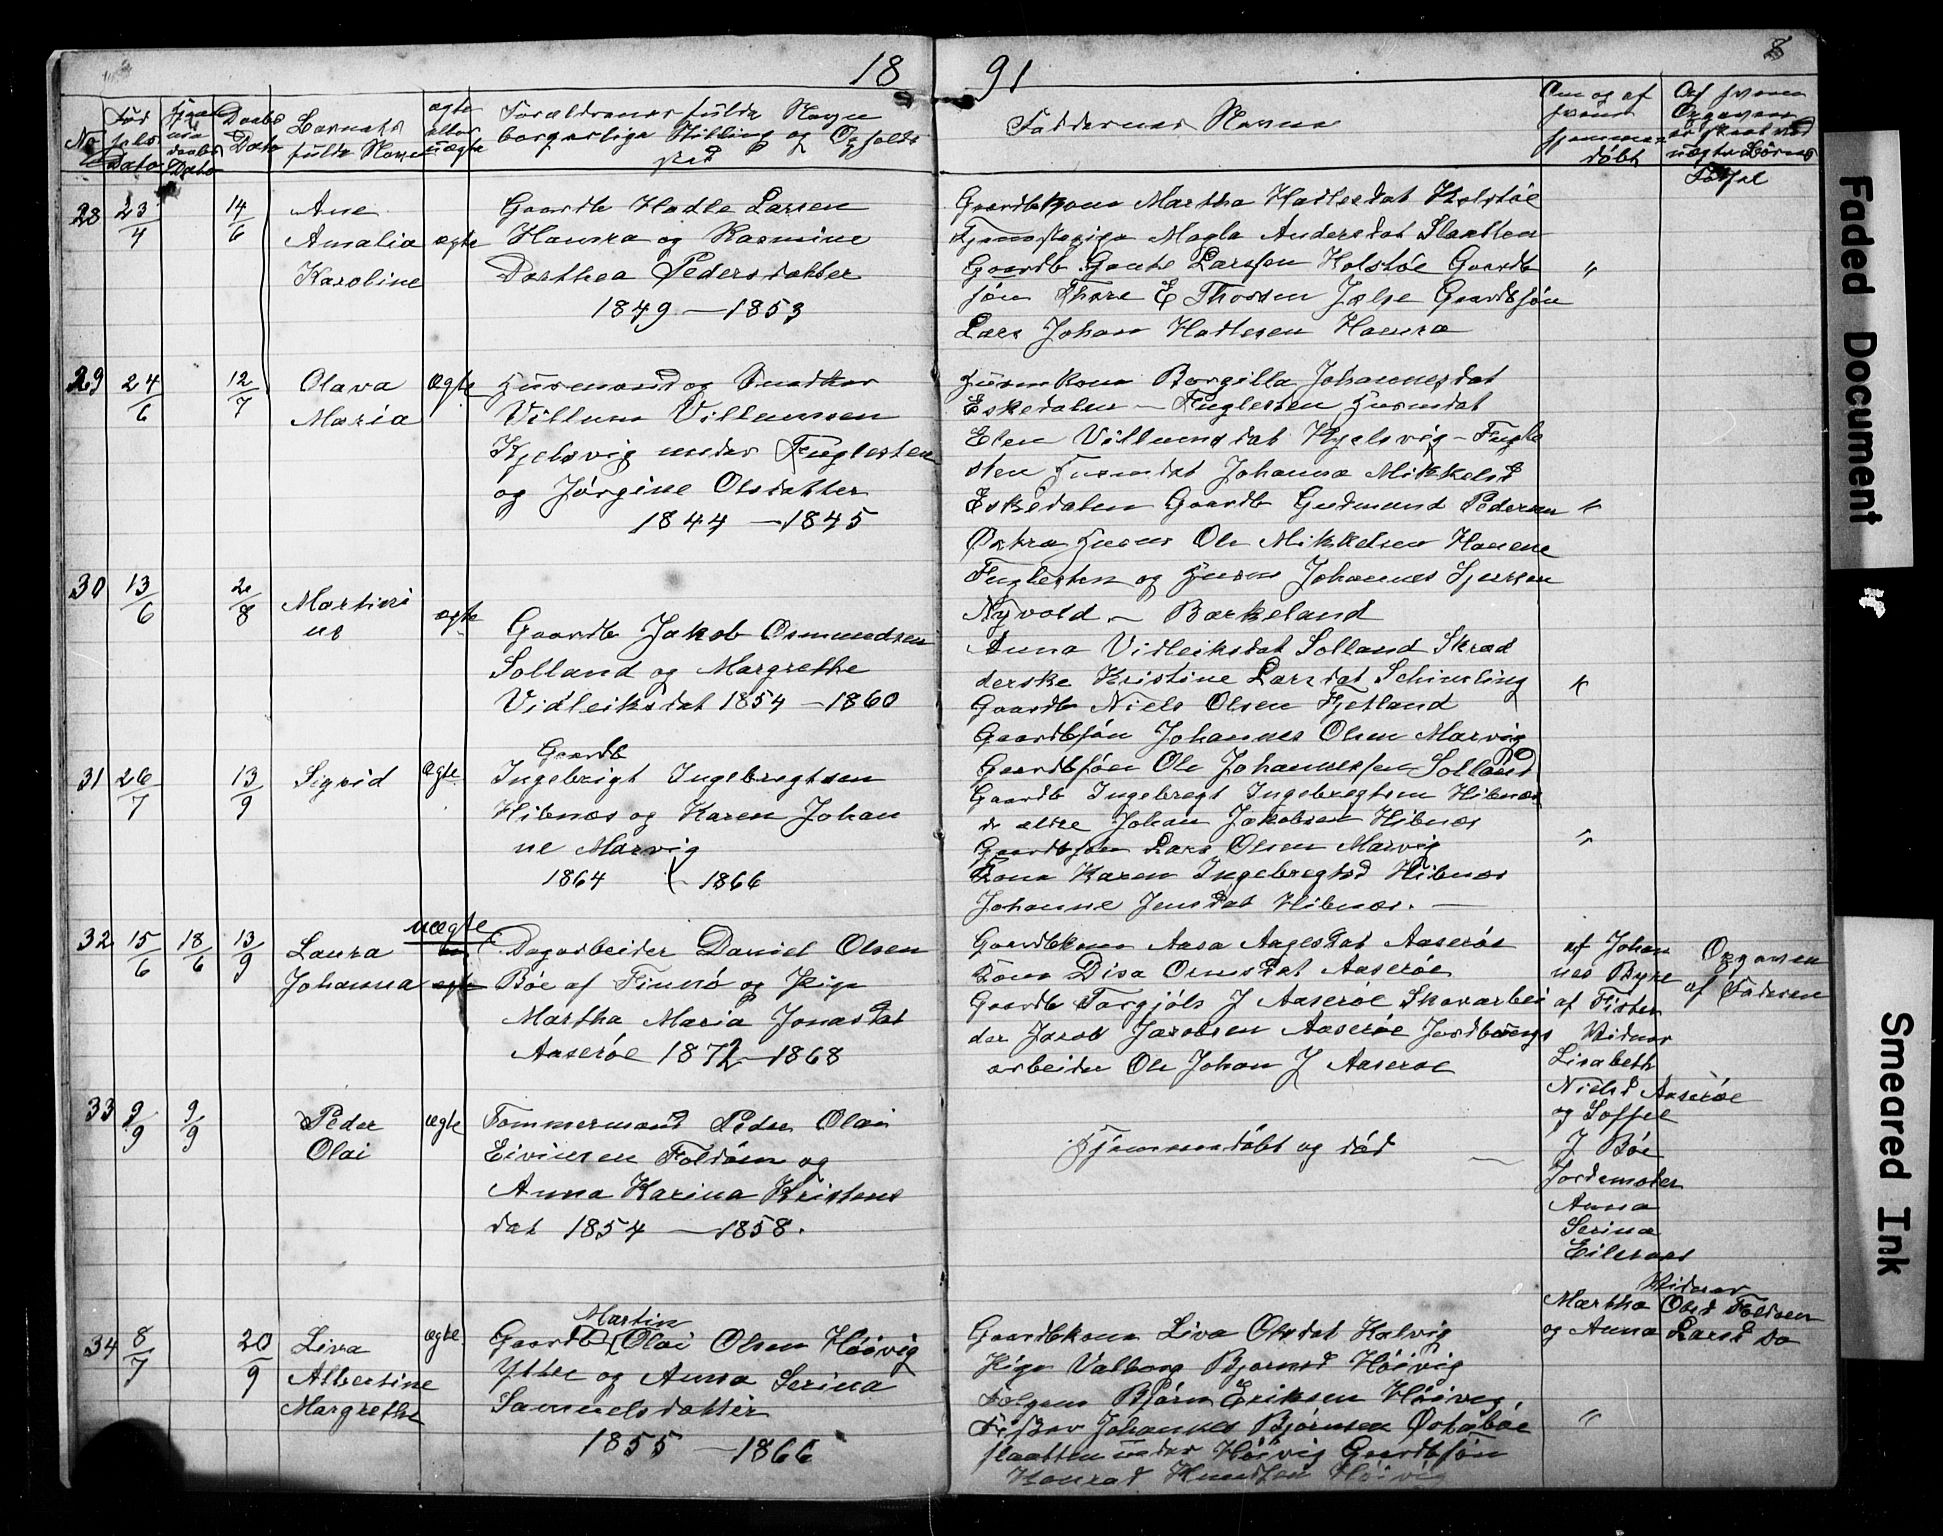 18 91
8
No
Fød
sels
Dato
Hjem
me
daabs
Dato
Daabs
Dato
Barnets
fulde Navn
ægte
eller
uægte
Forældrenes fulde Navn
borgerlige Stilling og Opholds
sted
Faddernes Navne
Om og af
hvem
hjemme
døbt
Af hvem
Opgaven
er skeet ved
uægte Børns
Fødsel
28 23/4 14/6
Ane
Amalia
Karoline
ægte
Gaardb Hadle Larsen
Haura og Rasmine
Dorthea Pedersdatter
1849 — 1853
Gaardbkone Martha Hadlesdat Holstøe
Magla Andersdat Slaatten
Gaardb Gaute Larssen Holstøe Gaardb
søn Thore E Thorsen Jelse Gaardbsøn
Lars Johan Hadlesen Haura
"
29 24/6 12/7
Olava
Maria
Ægte
Husmand og Snedker
Villum Villumsen
Kjelsvig under Fuglesten
og Jørgine Olsdatter
1844 — 1845
Husmkone Borgilla Johannesdat
Eskedalen — Fuglesten Husmdat
Elen Villumsdat Kjelsvig — Fugle
sten Husmdat Johanna Mikkelsd
Eskedalen Gaardb Gudmund Pedersen
Østra Husm Ole Mikkelsen Hauene
Fuglesten og Husm Johannes Sjursen
Nyvold — Barkeland
"
30 13/6 2/8
Martini
us
ægte
Gaardb Jakob Osmundsen
Solland og Margrethe
Vidleiksdat 1854 — 1860
Anna Vidleiksdat Solland Skræd
derske Kristine Larsdat Schimling
Gaardb Niels Olsen Fjetland
Gaardbsøn Johannes Olsen Marvig
Gaardbsøn Ole Johannessen Solland
"
31 26/7 13/9
Sigrid
Ægte
Gaardb
Ingebrigt Ingebregtsen
Hibnæs og Karen Johan
ne Marvig
1864 — 1866
Gaardb Ingebregt Ingebregtsen Hibnæs
d ældre Johan Jakobsen Hibnæs
Gaardbsøn Lars Olsen Marvig
Kone Karen Ingebregtsd Hibnæs
Johanne Jensdat Hibnæs. —
"
32 15/6 18/6 13/9
Laura
Johanna
uægte
ægte
Dagarbeider Daniel Olsen
Bøe af Finnø og Pige
Martha Maria Jonasdat
Aaserøe 1872 — 1868
Gaardbkone Aasa Aagesdat Aaserøe
Kone Disa Ormsdat Aaserøe
Gaardb Torgjøls J Aaserøe Skovarbei
der Jacob Jacobsen Aaserøe Jordbrugs
arbeider Ole Johan J Aaserøe
af Johan
nes Byre
af Fister
Vidner
Lisabeth
Nielsd Aaserøe
og Soffie
J Bøe
Opgaven
af Faderen
33 9/9 9/9
Peder
Olai
ægte
Tømmermand Peder Olai
Eivinsen Foldøen og
Anna Karina Kristens
dat 1854 — 1858.
Hjemmedøbt og død —
Jordemoder
Anna
Serina
Vidner
Martha Olsd Foldøen
og Anna Larsd Do
34 8/7 20/9
Liva
Albertine
Margrethe
ægte
Martin
Gaardb Olai Olsen Høivig
Yttre og Anna Serina
Samuelsdatter
1855 — 1866
Gaardbkone Liva Olsdat Kalvig
Pige Valborg Bjørnsd Høivig
Bjørn Eriksen Høivig,
Fisker Johannes Bjørnsen Østabøe
slaatten under Høivig Gaardbsøn
Konrad Knudsen Høivig
"
Faded Document
Smeared Ink